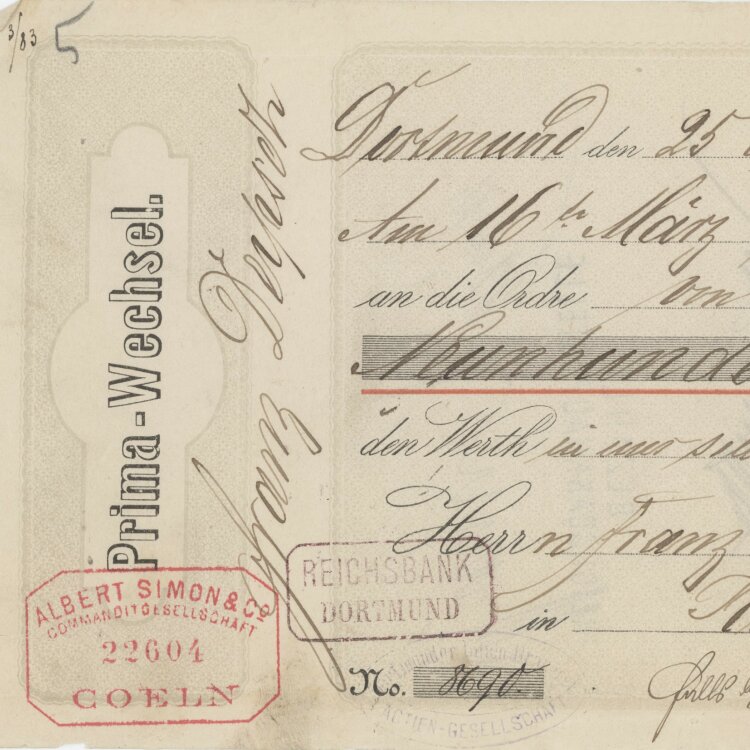 3/83
5
Prima-Wechsel.
Franz
Dortmund den 25
Am 16 ten März
an die Ordre von
Neunhunde
den Werth in uns
Herrn Franz
in
No. 8690.
falls
ALBERT SIMON & Co
COMMANDITGESELLSCHAFT
22604
COELN
REICHSBANK
DORTMUND
ACTIEN-GESELLSCHAFT